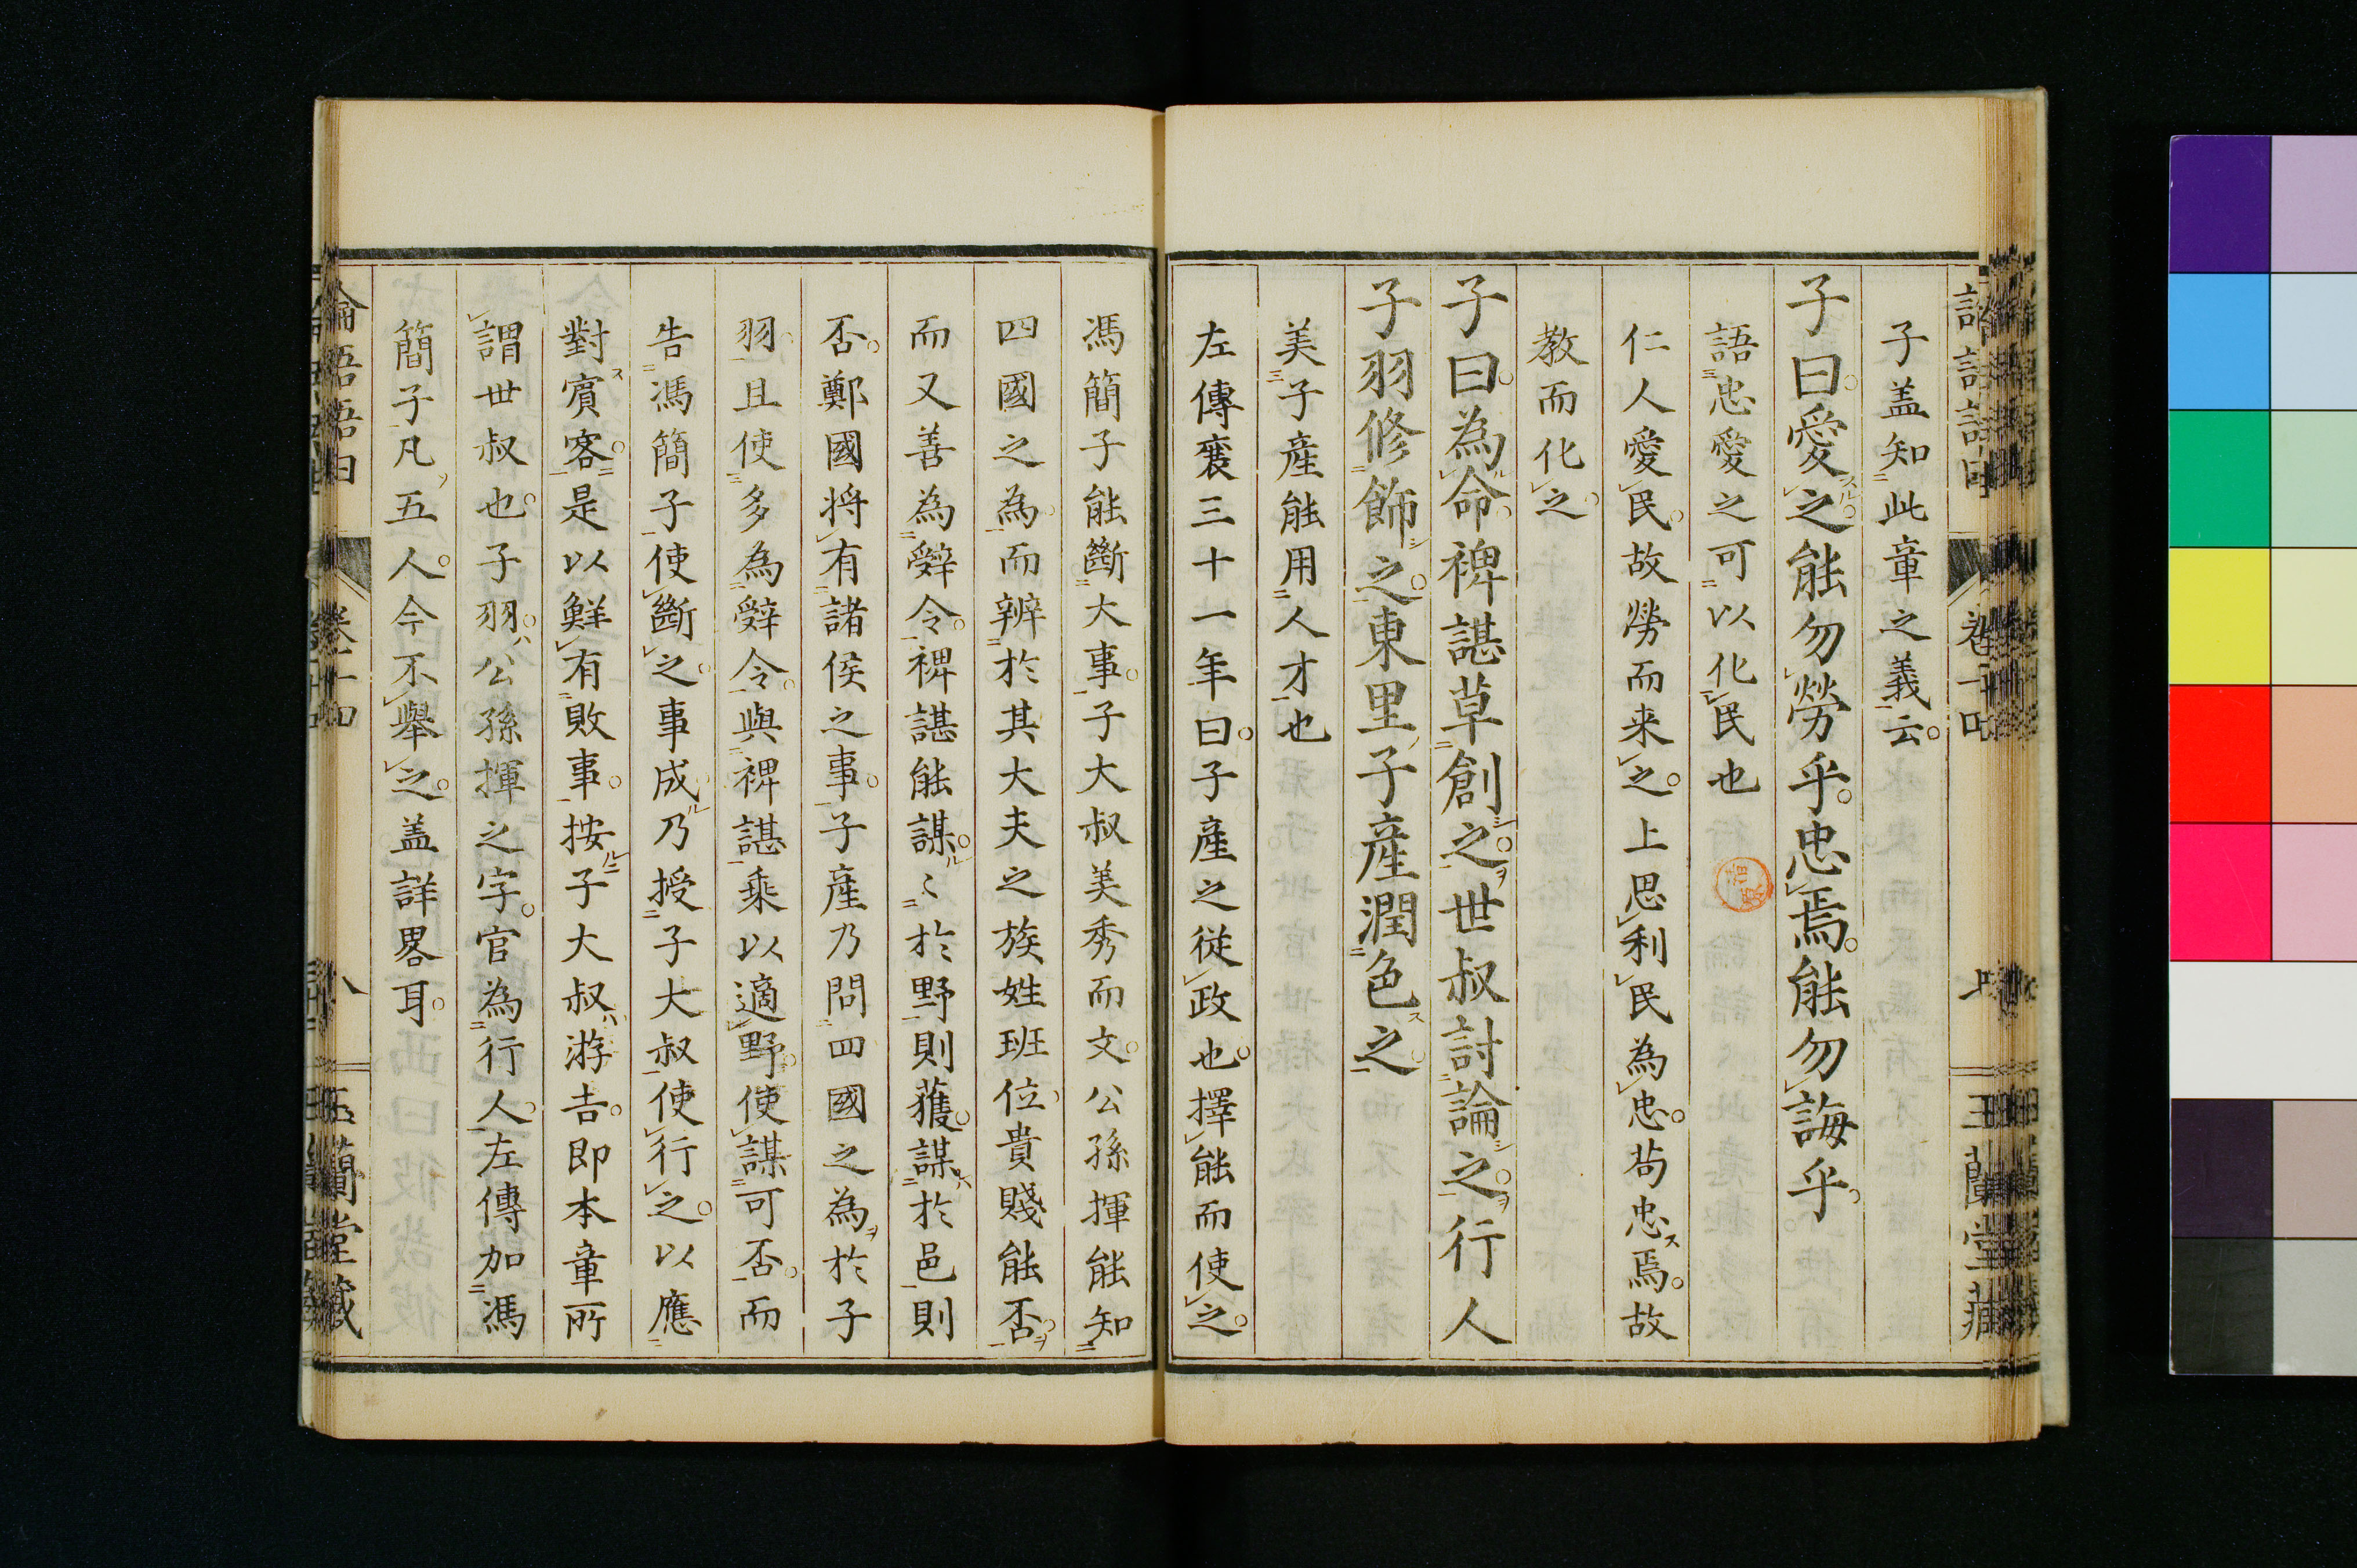 子盖知此章之義云
子曰愛之能勿勞乎忠焉能勿誨乎
語忠愛之可以化民也
仁人愛民故勞而来之上思利民為忠苟忠焉故
教而化之
子曰為命裨諶草創之世叔討論之行人
子羽修飾之東里子産潤色之
美子産能用人才也
左傳襄三十一年曰子産之従政也擇能而使之
馮簡子能斷大事子大叔美秀而文公孫揮能知
四國之為而辨於其大夫之族姓班位貴賤能否
而又善為辭令裨諶能謀〻於野則獲謀於邑則
否鄭國将有諸侯之事子産乃問四國之為於子
羽且使多為辭令與裨諶乘以適野使謀可否而
告馮簡子使斷之事成乃授子大叔使行之以應
對賓客是以鮮有敗事按子大叔游吉即本章所
謂世叔也子羽公孫揮之字官為行人左傳加馮
簡子凡五人今不舉之盖詳畧耳